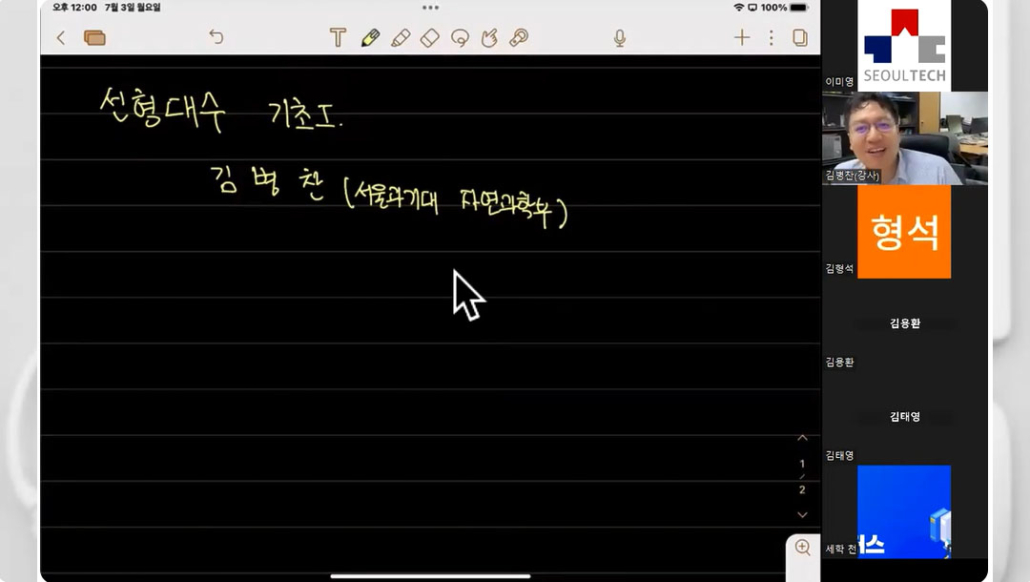 오후 12:00 7월 3일 월요일
100%
선형대수 기초I.
김병찬 (서울과기대 자연과학부)
1
2
SEOULTECH
이미영
김병찬(강사)
형석
김형석
김용환
김용환
김태영
김태영
러스
세학 전